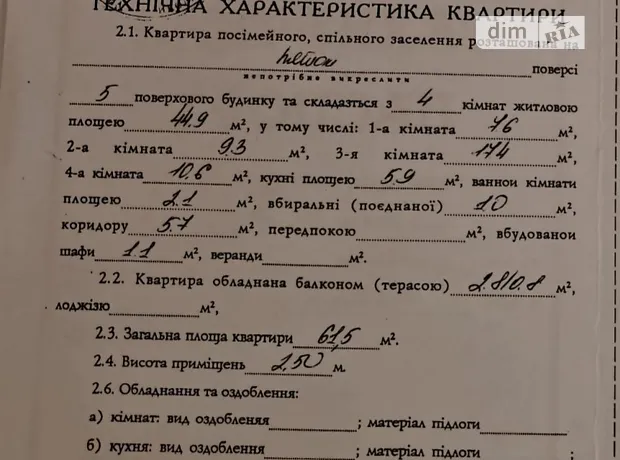 ТЕХНІЧНА ХАРАКТЕРИСТИКА КВАРТИРИ
dim RIA
2.1. Квартира посімейного, спільного заселення розташована на
поверсі
непотрібне викреслити
5 поверхового будинку та складаэться з 4 кімнат житловою
площею 44,9 м², у тому числі: 1-а кімната 7,6 м²,
2-а кімната 9.3 м², 3-я кімната 17,4 м²,
4-а кімната 10.6 м², кухні площею 5.9 м², ванной кімнати
площею 2.1 м², вбиральні (поєднаної) 1.0 м²,
коридору 5.7 м², передпокою м², вбудованой
шафи 1.1 м², веранди м².
2.2. Квартира обладнана балконом (терасою) 2.8/0.8 м²,
лоджізю м²,
2.3. Загальна площа квартири 61,5 м².
2.4. Висота приміщень 2,50 м.
2.6. Обладнання та оздоблення:
а) кімнат: вид оздобленяя ; матеріал підлоги
б) кухня: вид оздоблення ; матеріал підлоги ;